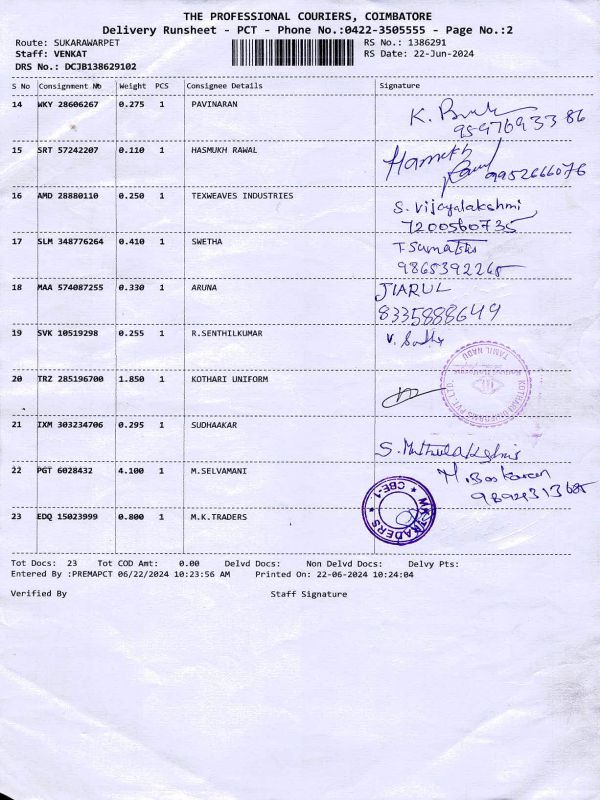 THE PROFESSIONAL COURIERS, COIMBATORE
Delivery Runsheet - PCT - Phone No.:0422-3505555 - Page No.:2
Route: SUKARAWARPET RS No.: 1386291
Staff: VENKAT RS Date: 22-Jun-2024
DRS No.: DCJB138629102
S No Consignment No Weight PCS Consignee Details Signature
14 WKY 28606267 0.275 1 PAVINARAN K.
9597693386
15 SRT 57242207 0.110 1 HASMUKH RAWAL Hasmukh
9952666076
16 AMD 28880110 0.250 1 TEXWEAVES INDUSTRIES S. Vijayalakshmi
7200560735
17 SLM 348776264 0.410 1 SWETHA T. Sumathi
9865392265
18 MAA 574087255 0.330 1 ARUNA JIARUL
8335888649
19 SVK 10519298 0.255 1 R.SENTHILKUMAR V.
20 TRZ 285196700 1.850 1 KOTHARI UNIFORM
KOTHARI UNIFORMS PVT. LTD. TAMIL NADU
21 IXM 303234706 0.295 1 SUDHAAKAR S. Muthulakshmi
22 PGT 6028432 4.100 1 M.SELVAMANI M. Baskaran
23 EDQ 15023999 0.800 1 M.K.TRADERS
M.K.TRADERS CBE-1
Tot Docs: 23 Tot COD Amt: 0.00 Delvd Docs: Non Delvd Docs: Delvy Pts:
Entered By :PREMAPCT 06/22/2024 10:23:56 AM Printed On: 22-06-2024 10:24:04
Verified By Staff Signature